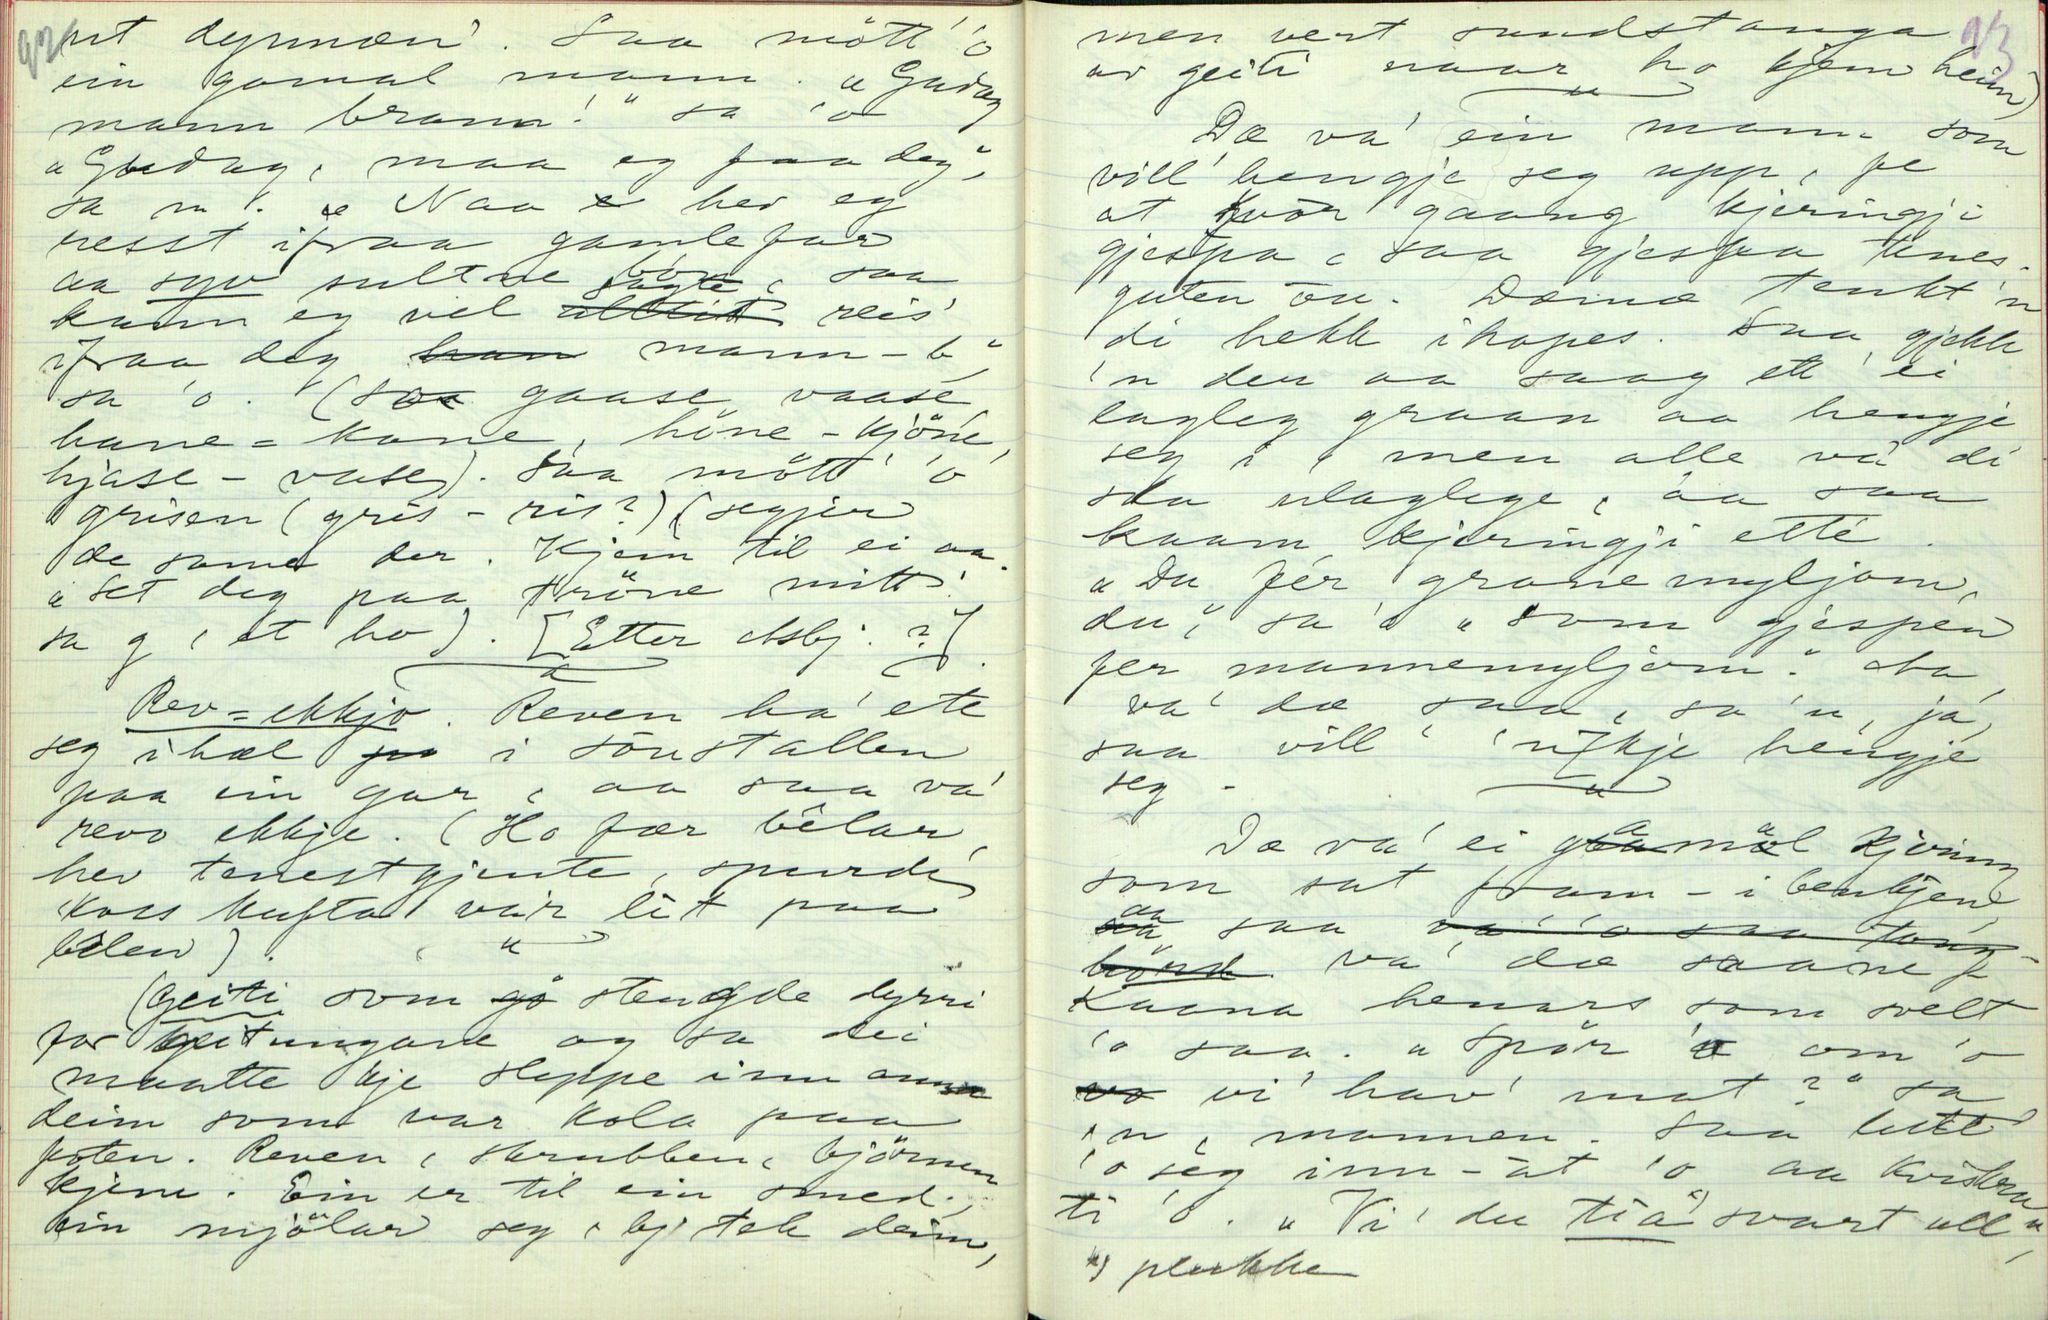 92
ut dyrnæn'. Saa mött' 'o
ein gomal mann. "Gudag
mann brann!" sa 'o
"Gudag, maa eg faa deg",
sa m. "Naa e her eg
resst ifraa gamlefar
aa syv sultne börn, saa
kann eg vel alltid reis'
ifraa deg mann-b,"
sa 'o. (Saa gaase vaase,
hane = kane, höne - kjöne,
hjase - vase). Saa mött' 'o
grisen (gris - ris?) (segjer
de same der. Kjem til ei aa.
"Set deg paa tröne mitt"
sa g, et ho). [Etter Asbj.?]
Rev-ekkjo. Reven ha' ete
seg ihæl i sönstallen
paa ein gar, aa saa va'
revo ekkje. (Ho fær belar,
hev tenestgjente, spurde
koss kufta var lit paa
belen).
(Geiti som stengde dyrri
for geitungane og sa dei
maatte kje sleppe inn ann
deim som var kola paa
foten. Reven, skrubben, björnen
kjem. Ein er til ein smed,
ein mjölar seg, bj. tek deim,
93
men vert sundstanga
av geiti naar ho kjem heim)
Dæ va' ein mann som
vill' hengje seg upp, fe
at kvor gaang kjeringji
gjespa, saa gjespa tenes-
guten öu. Dæmæ tenkt 'n
di hekk ihopes. Saa gjekk
'n den aa saag ett' ei
lagleg graan aa hengje
seg i, men alle va di
saa ulaglege, aa saa
kaam kjeringji ette.
"Du fer grane myljom,
du", sa 'o "som gjespen
fer mannemyljom." Aa
va' dæ saa, sa 'n, ja,
saa vill' 'n ikje hengje
seg.
Dæ va' ei gamal kjering
som sat fram-i benkjene
aa saa va' 'o saa tung-
hörd va' dæ saane f
Kaana henars som svelt
'o saa. "Spör 'o om 'o
vi' hav' mat?" sa
'n, mannen. Saa lutt'
'o seg inn-åt 'o aa kviskra
ti 'o. "Vi' du tiå*) svart ull",
*) plukke